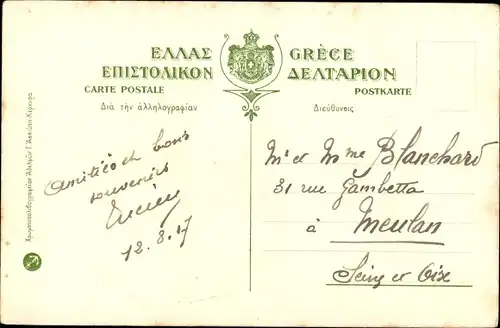 ΕΛΛΑΣ GRÈCE
ΕΠΙΣΤΟΛΙΚΟΝ ΔΕΛΤΑΡΙΟΝ
CARTE POSTALE POSTKARTE
Διὰ τὴν ἀλληλογραφίαν Διεύθυνσις
Amitiés et bons
souvenirs
Lucien
12.8.17
Mr et Mme Blanchard
31 rue Gambetta
à
Meulan
Seine et Oise
Χρωμοτυπολιθογραφεῖον Ἀδελφῶν Γ. Ἀσπιώτη-Κέρκυρα